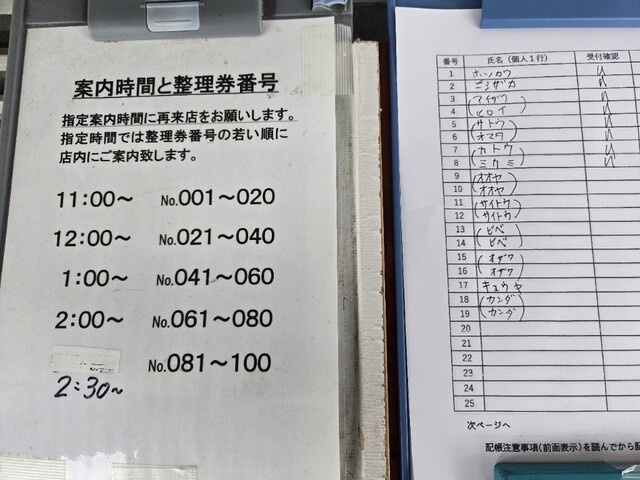 案内時間と整理券番号
指定案内時間に再来店をお願いします。
指定時間では整理券番号の若い順に
店内にご案内致します。
11:00～ No.001～020
12:00～ No.021～040
1:00～ No.041～060
2:00～ No.061～080
No.081～100
2:30～
番号 氏名（個人1行） 受付確認
1 ホソカワ
2 ニシザカ
3 マイザワ
4 ヒロイ
5 サトウ
6 オマタ
7 カトウ
8 ミカミ
9 オオヤ
10 オオヤ
11 サイトウ
12 サイトウ
13 ビベ
14 ビベ
15 オザワ
16 オザワ
17 キュウヤ
18 カンダ
19 カンダ
20
21
22
23
24
25
次ページへ
記帳注意事項（前面表示）を読んでから記